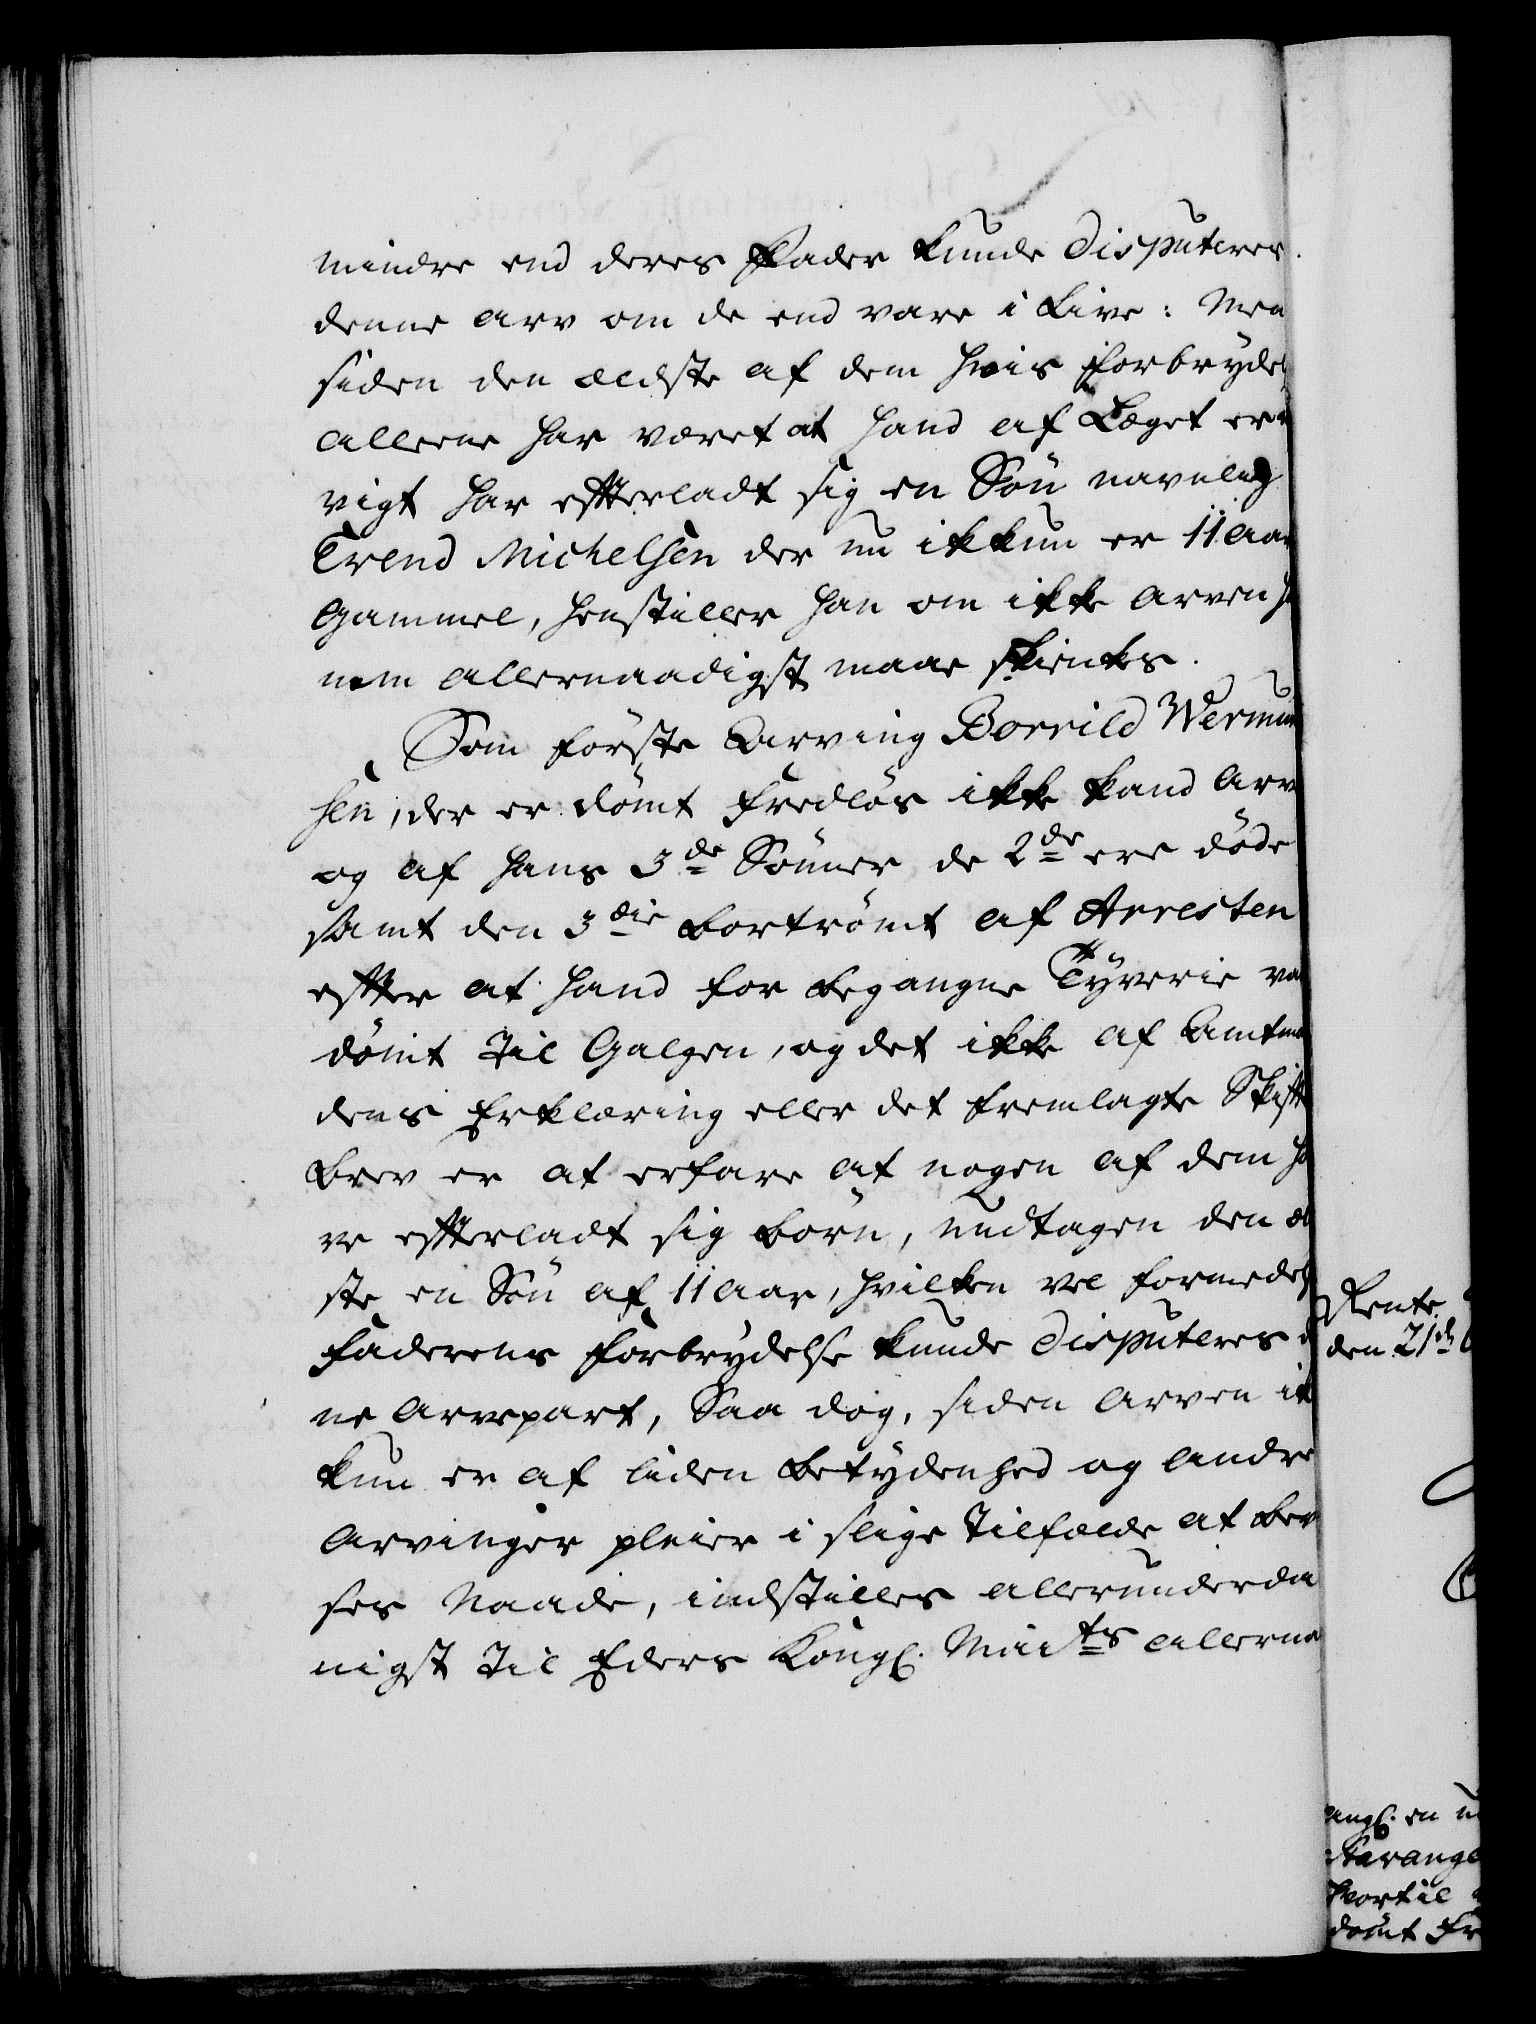 mindre end deres Fader kunde disputeres
denne arv om de end vare i Live: Men
siden den ældste af dem hvis forbrydel
allene har været at hand af Læget er
vigt har efterladt sig en Søn navnlig
Trend Michelsen der nu ikkun er 11 Aar
Gammel, henstiller han om ikke arven ha
nem allernaadigst maae skienkes.
Som første Arving Borrild Wermun
sen, der er dømt fredløs ikke kand arv
og af hans 3de Sønner de 2de ere døde
samt den 3die bortrømt af Arresten
efter at hand for begangne Tyverie va
dømt til Galgen, og det ikke af Amtma
dens Erklæring eller det fremlagte Skift
brev er at erfare at nogen af dem ha
ve efterladt sig børn, undtagen den æl
ste en Søn af 11 Aar, hvilken vel formedels
Faderens forbrydelse kunde disputeres d
ne Arvepart, Saa dog, siden Arven ik
kun er af liden betydenhed og andre
Arvinger pleier i slige tilfælde at bev
ses Naade, indstilles allerunderda
nigst til Eders Kongl. Mai<sup>ts</sup> allerna
Rente
den 21de
ang. en
Stavang
hvortil
dømt Fr